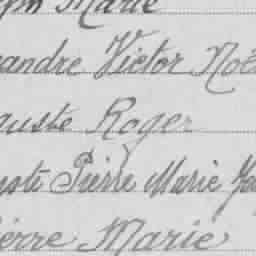 Marie
andre Victor Noë
guste Roger
Pierre Marie
ierre Marie